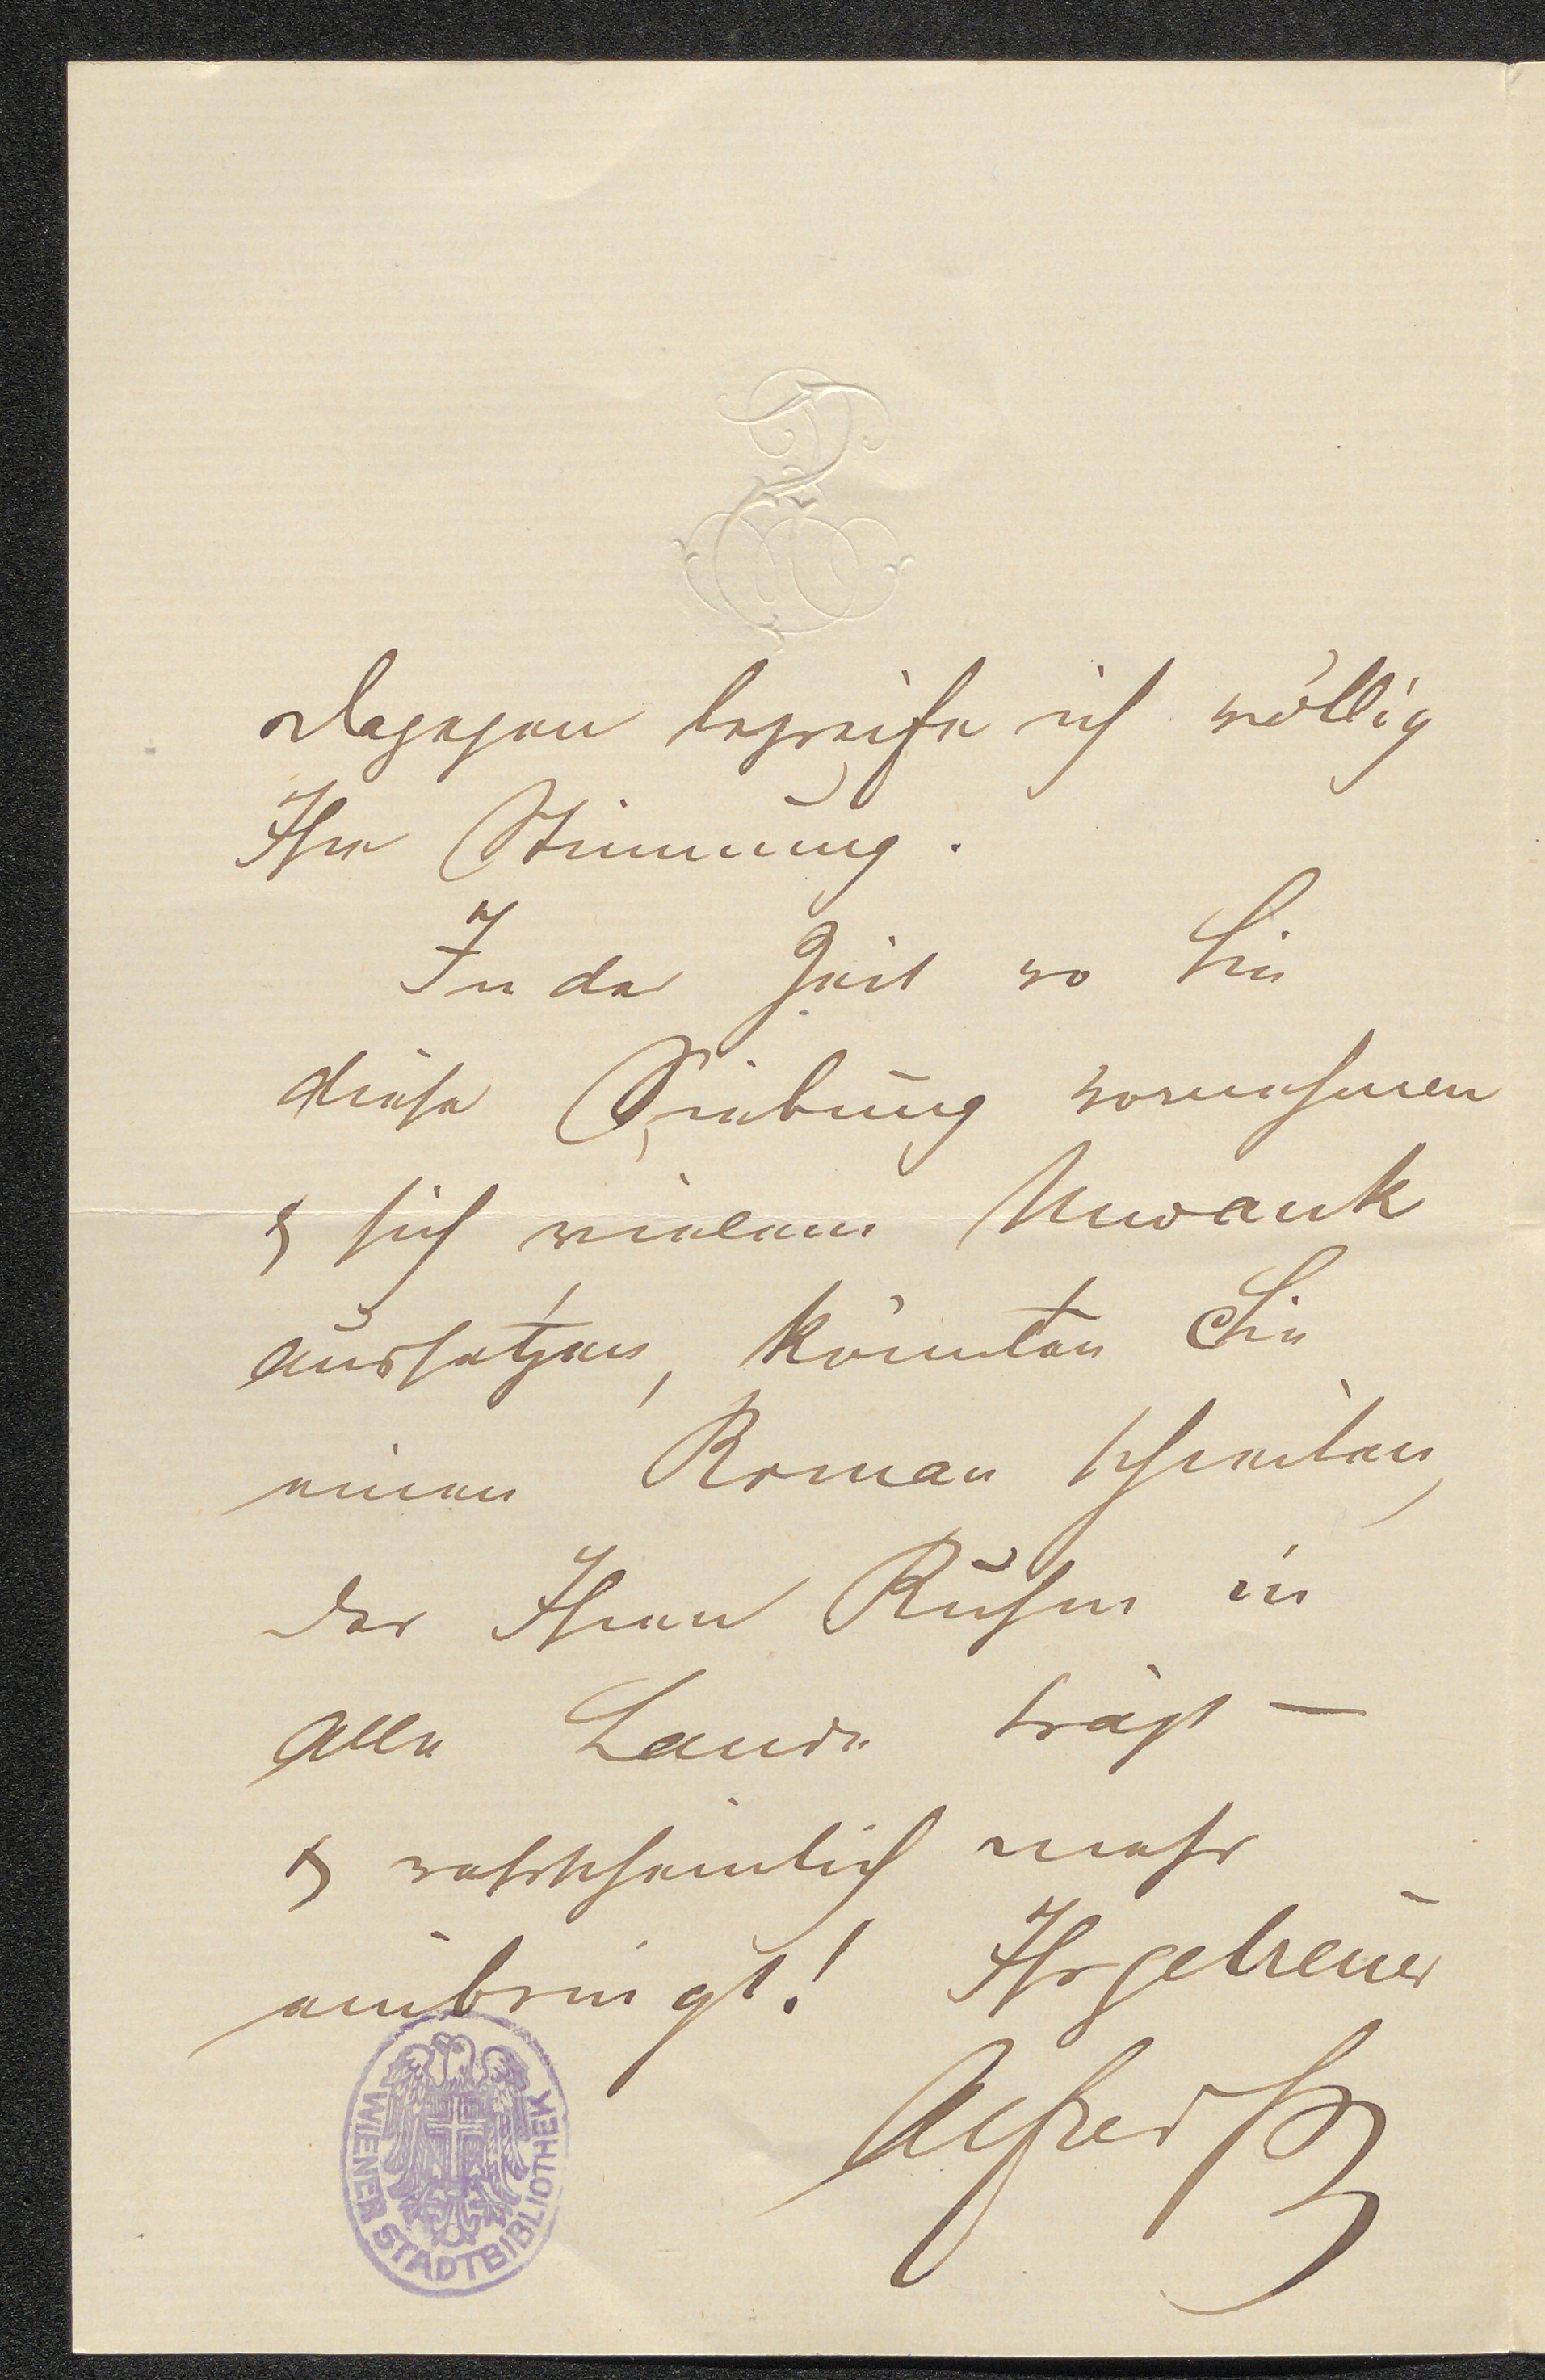 Dagegen begreife ich völlig
Ihre Stimmung.
In der Zeit wo Sie
diese Siebung vornehmen
& sich vielem Unwank
aussetzen, könnten Sie
einen Roman schreiben,
der Ihren Ruhm in
alle Lande trägt –
& wahrscheinlich mehr
einbringt! Ihr getreuer
Alfred
WIENER STADTBIBLIOTHEK